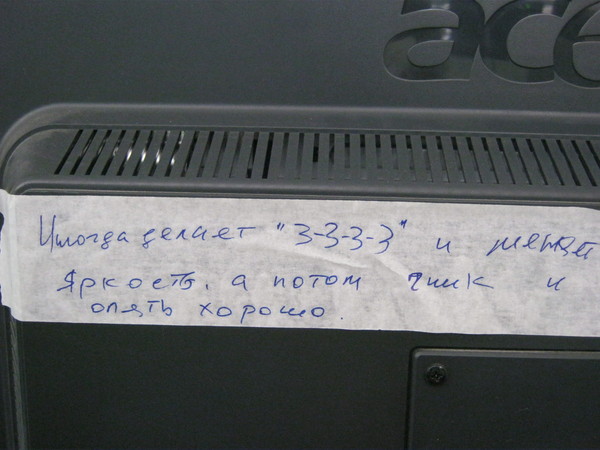 ace
Иногда делает "З-З-З-З" и меняет
яркость, а потом чик и
опять хорошо.